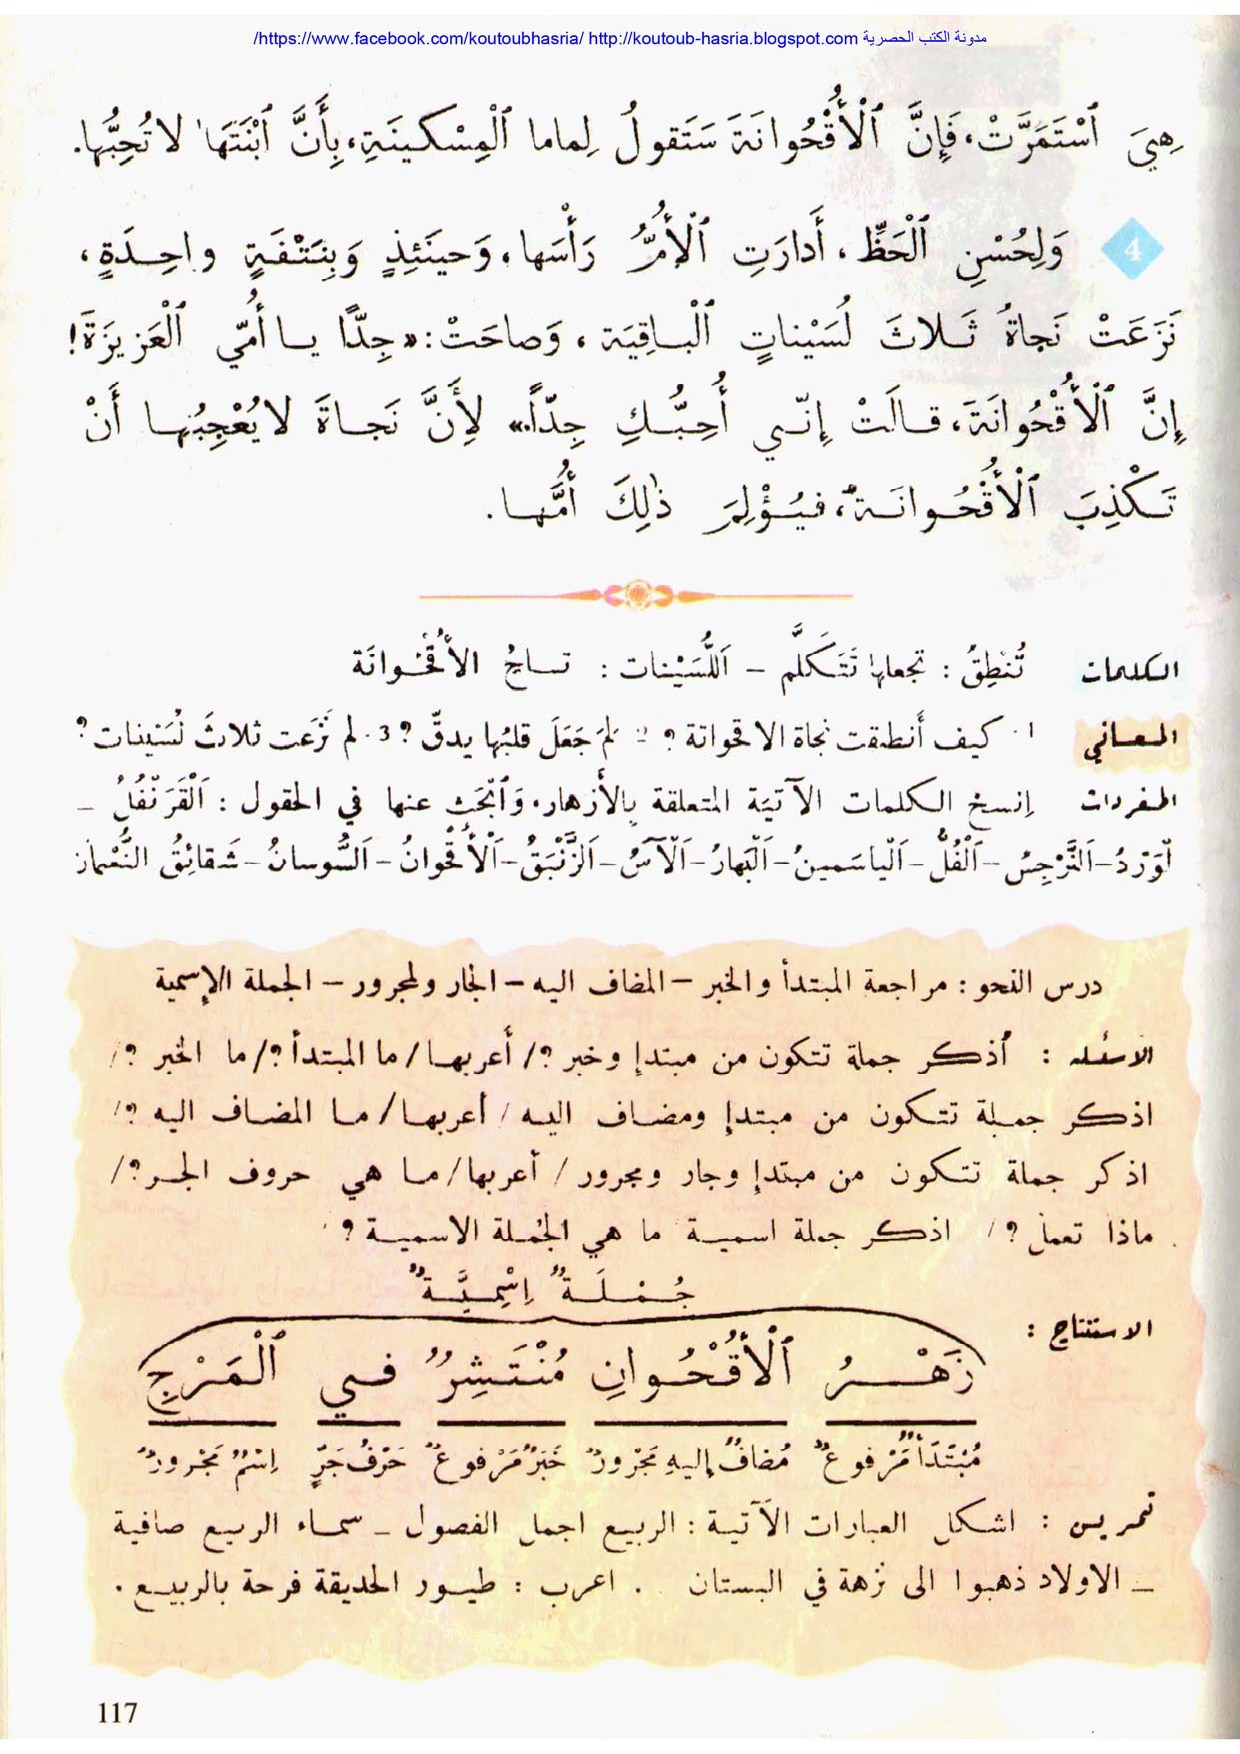 https://www.facebook.com/koutoubhasria/ http://koutoub-hasria.blogspot.com مدونة الكتب الحصرية/
هِيَ ٱسْتَمَرَّتْ، فَإِنَّ ٱلْأُقْحُوانَةَ سَتَقولُ لِماما ٱلْمِسْكينَةِ، بِأَنَّ ٱبْنَتَها لا تُحِبُّها.
4 وَلِحُسْنِ ٱلْحَظِّ، أَدارَتِ ٱلْأُمُّ رَأْسَها، وَحينَئِذٍ وَبِنَتْفَةٍ واحِدَةٍ،
نَزَعَتْ نَجاةُ ثَلاثَ لُسَيْناتٍ ٱلْباقِيَة، وَصاحَتْ: «جِدًّا يا أُمّي ٱلْعَزيزَةَ!
إِنَّ ٱلْأُقْحُوانَةَ، قالَتْ إِنّي أُحِبُّكِ جِدًّا.» لِأَنَّ نَجاةَ لا يُعْجِبُها أَنْ
تَكْذِبَ ٱلْأُقْحُوانَةُ، فَيُؤْلِمَ ذٰلِكَ أُمَّها.
الكلمات تُنْطِقُ : تجعلها تَتَكَلَّم – اَللُّسَيْنات : تساجُ الأُقْحُوانَة
المعاني 1. كيف أَنطقت نجاة الاقحوانة؟ 2 لمَ جَعَلَ قلبُها يدقّ؟ 3. لم نَزَعت ثلاثَ لُسَينات؟
المفردات إنسخ الكلمات الآتيَة المتعلقة بالأَزهار. وَٱبْحَث عنها في الحقول : اَلْقَرَنْفُلُ –
اَلْوَرْدُ – اَلنَّرْجِسُ – اَلْفُلُّ – اَلْياسَمينُ – اَلْبَهارُ – اَلْآسُ – اَلزَّنْبَقُ – اَلْأُقْحُوانُ – اَلسُّوسانُ – شَقائِقُ النُّعْمان
درس النحو : مراجعة المبتدأ والخبر – المضاف اليه – الجار ولمجرور – الجملة الإسمية
الاسئله : أذكر جملة تتكون من مبتدإ وخبر ؟/ أعربها / ما المبتدأ ؟/ ما الخبر ؟/
اذكر جملة تتكون من مبتدإ ومضاف اليه / أعربها / ما المضاف اليه ؟/
اذكر جملة تتكون من مبتدإ وجار ومجرور / أعربها / ما هي حروف الجر ؟/
ماذا تعمل ؟/ اذكر جملة اسمية ما هي الجُملة الاسمية ؟
جُمْلَةٌ اِسْمِيَّةٌ
الاستنتاج :
زَهْرُ ٱلْأُقْحُوانِ مُنْتَشِرٌ في ٱلْمَرْجِ
مُبْتَدَأٌ مَرْفوعٌ مُضافٌ إِليهِ مَجْرورٌ خَبَرٌ مَرْفوعٌ حَرْفُ جَرٍّ اِسْمٌ مَجْرورٌ
تمرين : اشكل العبارات الآتية : الربيع اجمل الفصول – سماء الربيع صافية
– الاولاد ذهبوا الى نزهة في البستان . اعرب : طيور الحديقة فرحة بالربيع .
117